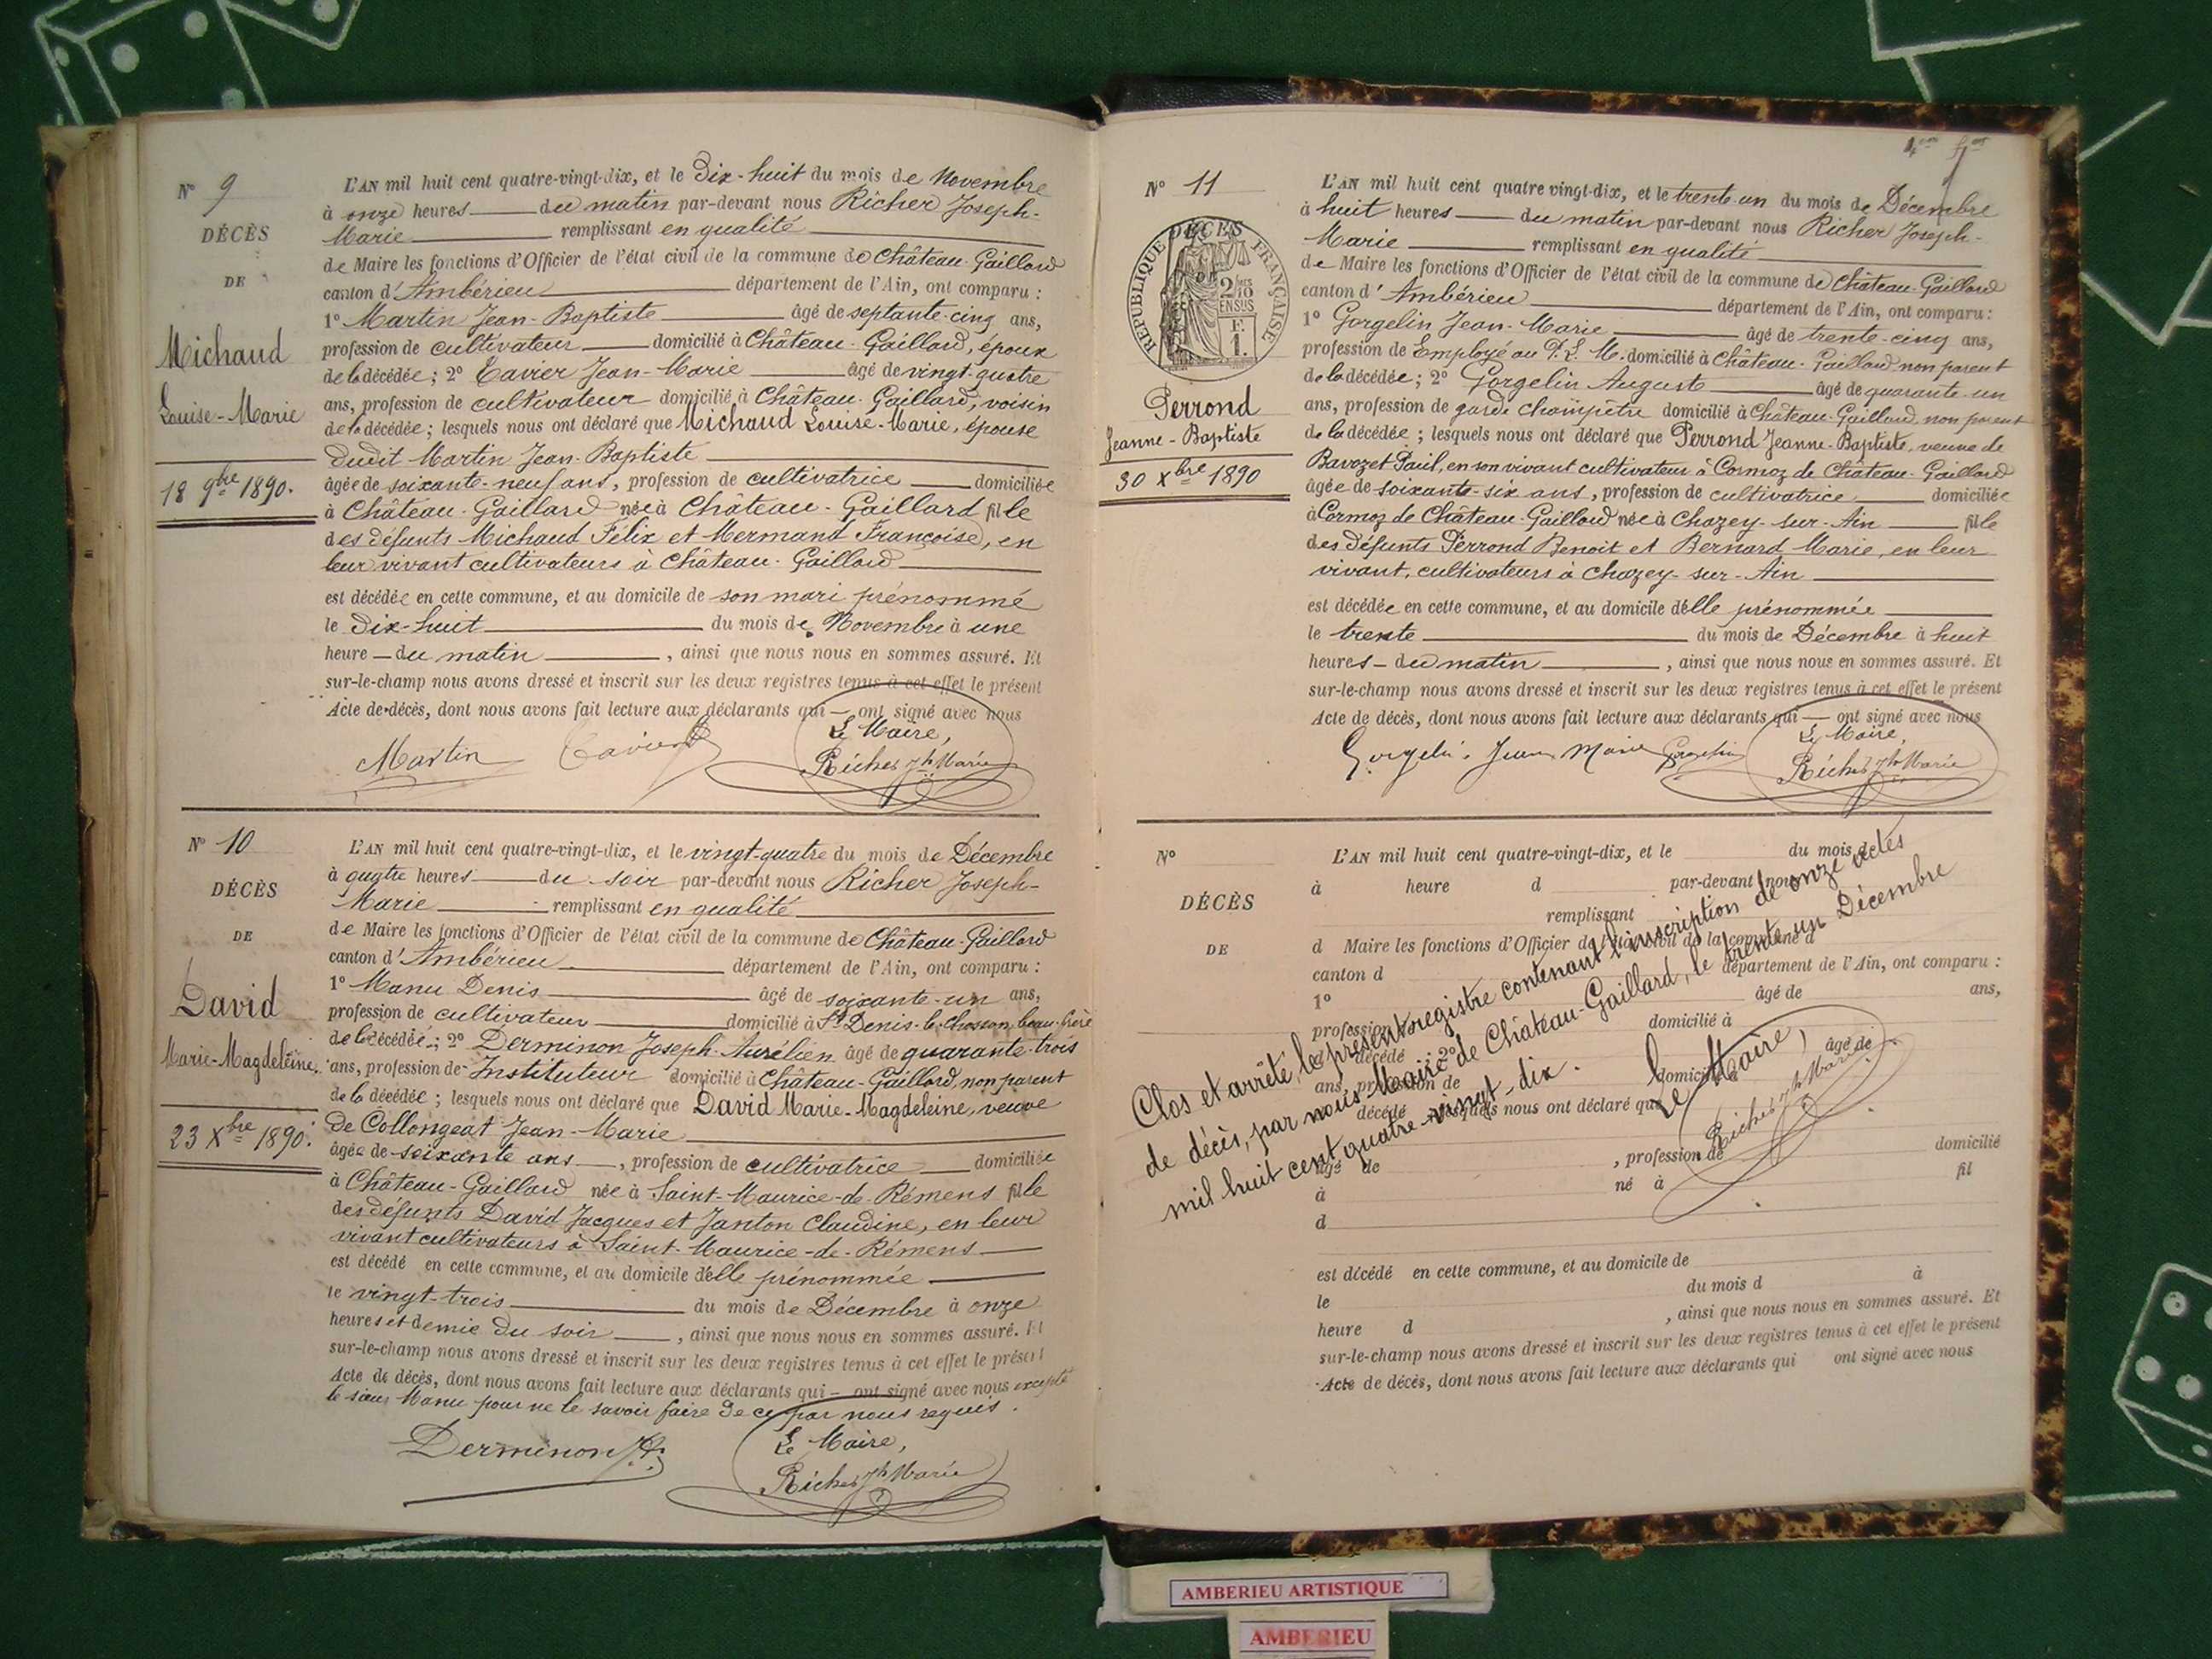 N° 9
DÉCÈS
DE
Michaud
Louise-Marie
18 9bre 1890.
L'AN mil huit cent quatre-vingt-dix, et le Dix-huit du mois de Novembre
à onze heures du matin par-devant nous Richer Joseph-
Marie remplissant en qualité
de Maire les fonctions d'Officier de l'état civil de la commune de Château-Gaillard
canton d'Ambérieu département de l'Ain, ont comparu :
1° Martin Jean-Baptiste âgé de septante-cinq ans,
profession de cultivateur domicilié à Château-Gaillard, époux
de la décédée ; 2° Cavier Jean-Marie âgé de vingt-quatre
ans, profession de cultivateur domicilié à Château-Gaillard, voisin
de la décédée ; lesquels nous ont déclaré que Michaud Louise-Marie, épouse
dudit Martin Jean-Baptiste
âgée de soixante-neuf ans, profession de cultivatrice domiciliée
à Château-Gaillard née à Château-Gaillard fille
des défunts Michaud Félix et Mermand Françoise, en
leur vivant cultivateurs à Château-Gaillard
est décédée en cette commune, et au domicile de son mari prénommé
le Dix-huit du mois de Novembre à une
heure du matin, ainsi que nous nous en sommes assuré. Et
sur-le-champ nous avons dressé et inscrit sur les deux registres tenus à cet effet le présent
Acte de décès, dont nous avons fait lecture aux déclarants qui — ont signé avec nous
Le Maire,
Martin Cavier Richer Jh Marie
N° 10
DÉCÈS
DE
David
Marie-Magdeleine.
23 Xbre 1890.
L'AN mil huit cent quatre-vingt-dix, et le vingt-quatre du mois de Décembre
à quatre heures du soir par-devant nous Richer Joseph-
Marie remplissant en qualité
de Maire les fonctions d'Officier de l'état civil de la commune de Château-Gaillard
canton d'Ambérieu département de l'Ain, ont comparu :
1° Manu Denis âgé de soixante-un ans,
profession de cultivateur domicilié à St Denis-le-Chosson, beau-frère
de la décédée ; 2° Derminon Joseph-Aurélien âgé de quarante-trois
ans, profession de Instituteur domicilié à Château-Gaillard, non parent
de la décédée ; lesquels nous ont déclaré que David Marie-Magdeleine, veuve
de Collongeat Jean-Marie
âgée de soixante ans, profession de cultivatrice domiciliée
à Château-Gaillard née à Saint-Maurice-de-Rémens fille
des défunts David Jacques et Janton Claudine, en leur
vivant cultivateurs à Saint-Maurice-de-Rémens
est décédé en cette commune, et au domicile d'elle prénommée
le vingt-trois du mois de Décembre à onze
heures et demie du soir, ainsi que nous nous en sommes assuré. Et
sur-le-champ nous avons dressé et inscrit sur les deux registres tenus à cet effet le présent
Acte de décès, dont nous avons fait lecture aux déclarants qui — ont signé avec nous excepté
le sieur Manu pour ne le savoir faire de ce par nous requis.
Le Maire,
Derminon Richer Jh Marie
N° 11
DÉCÈS
RÉPUBLIQUE FRANÇAISE
2/10 EN SUS
F.
1.
Perrond
Jeanne-Baptiste
30 Xbre 1890
L'AN mil huit cent quatre vingt-dix, et le trente-un du mois de Décembre
à huit heures du matin par-devant nous Richer Joseph-
Marie remplissant en qualité
de Maire les fonctions d'Officier de l'état civil de la commune de Château-Gaillard
canton d'Ambérieu département de l'Ain, ont comparu :
1° Gorgelin Jean-Marie âgé de trente-cinq ans,
profession de Employé au P. L. M. domicilié à Château-Gaillard non parent
de la décédée ; 2° Gorgelin Auguste âgé de quarante-un
ans, profession de garde champêtre domicilié à Château-Gaillard, non parent
de la décédée ; lesquels nous ont déclaré que Perrond Jeanne-Baptiste, veuve de
Bavozet Paul, en son vivant cultivateur à Cormoz de Château-Gaillard
âgée de soixante-six ans, profession de cultivatrice domiciliée
à Cormoz de Château-Gaillard née à Chazey-sur-Ain fille
des défunts Perrond Benoit et Bernard Marie, en leur
vivant, cultivateurs à Chazey-sur-Ain
est décédée en cette commune, et au domicile d'elle prénommée
le trente du mois de Décembre à huit
heures du matin, ainsi que nous nous en sommes assuré. Et
sur-le-champ nous avons dressé et inscrit sur les deux registres tenus à cet effet le présent
Acte de décès, dont nous avons fait lecture aux déclarants qui — ont signé avec nous
Le Maire,
Gorgelin Jean Marie Gorgelin Richer Jh Marie
N°
DÉCÈS
DE
L'AN mil huit cent quatre-vingt-dix, et le du mois de
à heure d par-devant nous
remplissant
d Maire les fonctions d'Officier de l'état civil de la commune d
canton d département de l'Ain, ont comparu :
1° âgé de ans,
profession de domicilié à
d décédé ; 2° âgé de
ans, profession de domicilié à
d décédé lesquels nous ont déclaré que
âgé de , profession de domicilié
à né à fil
d
est décédé en cette commune, et au domicile de
le du mois d à
heure d , ainsi que nous nous en sommes assuré. Et
sur-le-champ nous avons dressé et inscrit sur les deux registres tenus à cet effet le présent
Acte de décès, dont nous avons fait lecture aux déclarants qui ont signé avec nous
Clos et arrêté, le présent registre contenant l'inscription de onze actes
de décès, par nous Maire de Château-Gaillard, le trente-un Décembre
mil huit cent quatre-vingt-dix.
Le Maire,
Richer Jh Marie
AMBERIEU ARTISTIQUE
AMBERIEU